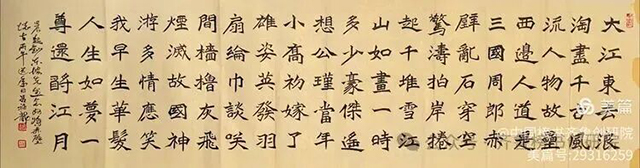 大江東去浪
淘盡千古風
流人物故壘
西邊人道是
三國周郎赤
壁亂石穿空
驚濤拍岸捲
起千堆雪江
山如畫一時
多少豪傑遙
想公瑾當年
小喬初嫁了
雄姿英發羽
扇綸巾談笑
間檣櫓灰飛
煙滅故國神
游多情應笑
我早生華髮
人生如夢一
尊還酹江月
美篇
美篇号:29316259